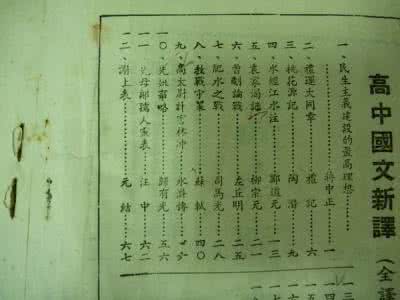 高中國文新譯（全譯
一、民生主義建設的最高理想……蔣中正…一
二、禮運大同章……禮記…六
三、桃花源記……陶潛…九
四、水經江水注……酈道元…一三
五、袁家渴記……柳宗元…二一
六、曹劌論戰……左丘明…二五
七、肥水之戰……司馬光…二八
八、教戰守策……蘇軾…四〇
九、高太尉計害林冲……水滸傳
一〇、先妣事略……歸有光…五六
一一、先母鄒孺人靈表……汪中…六二
一二、謝上表……元結…六七